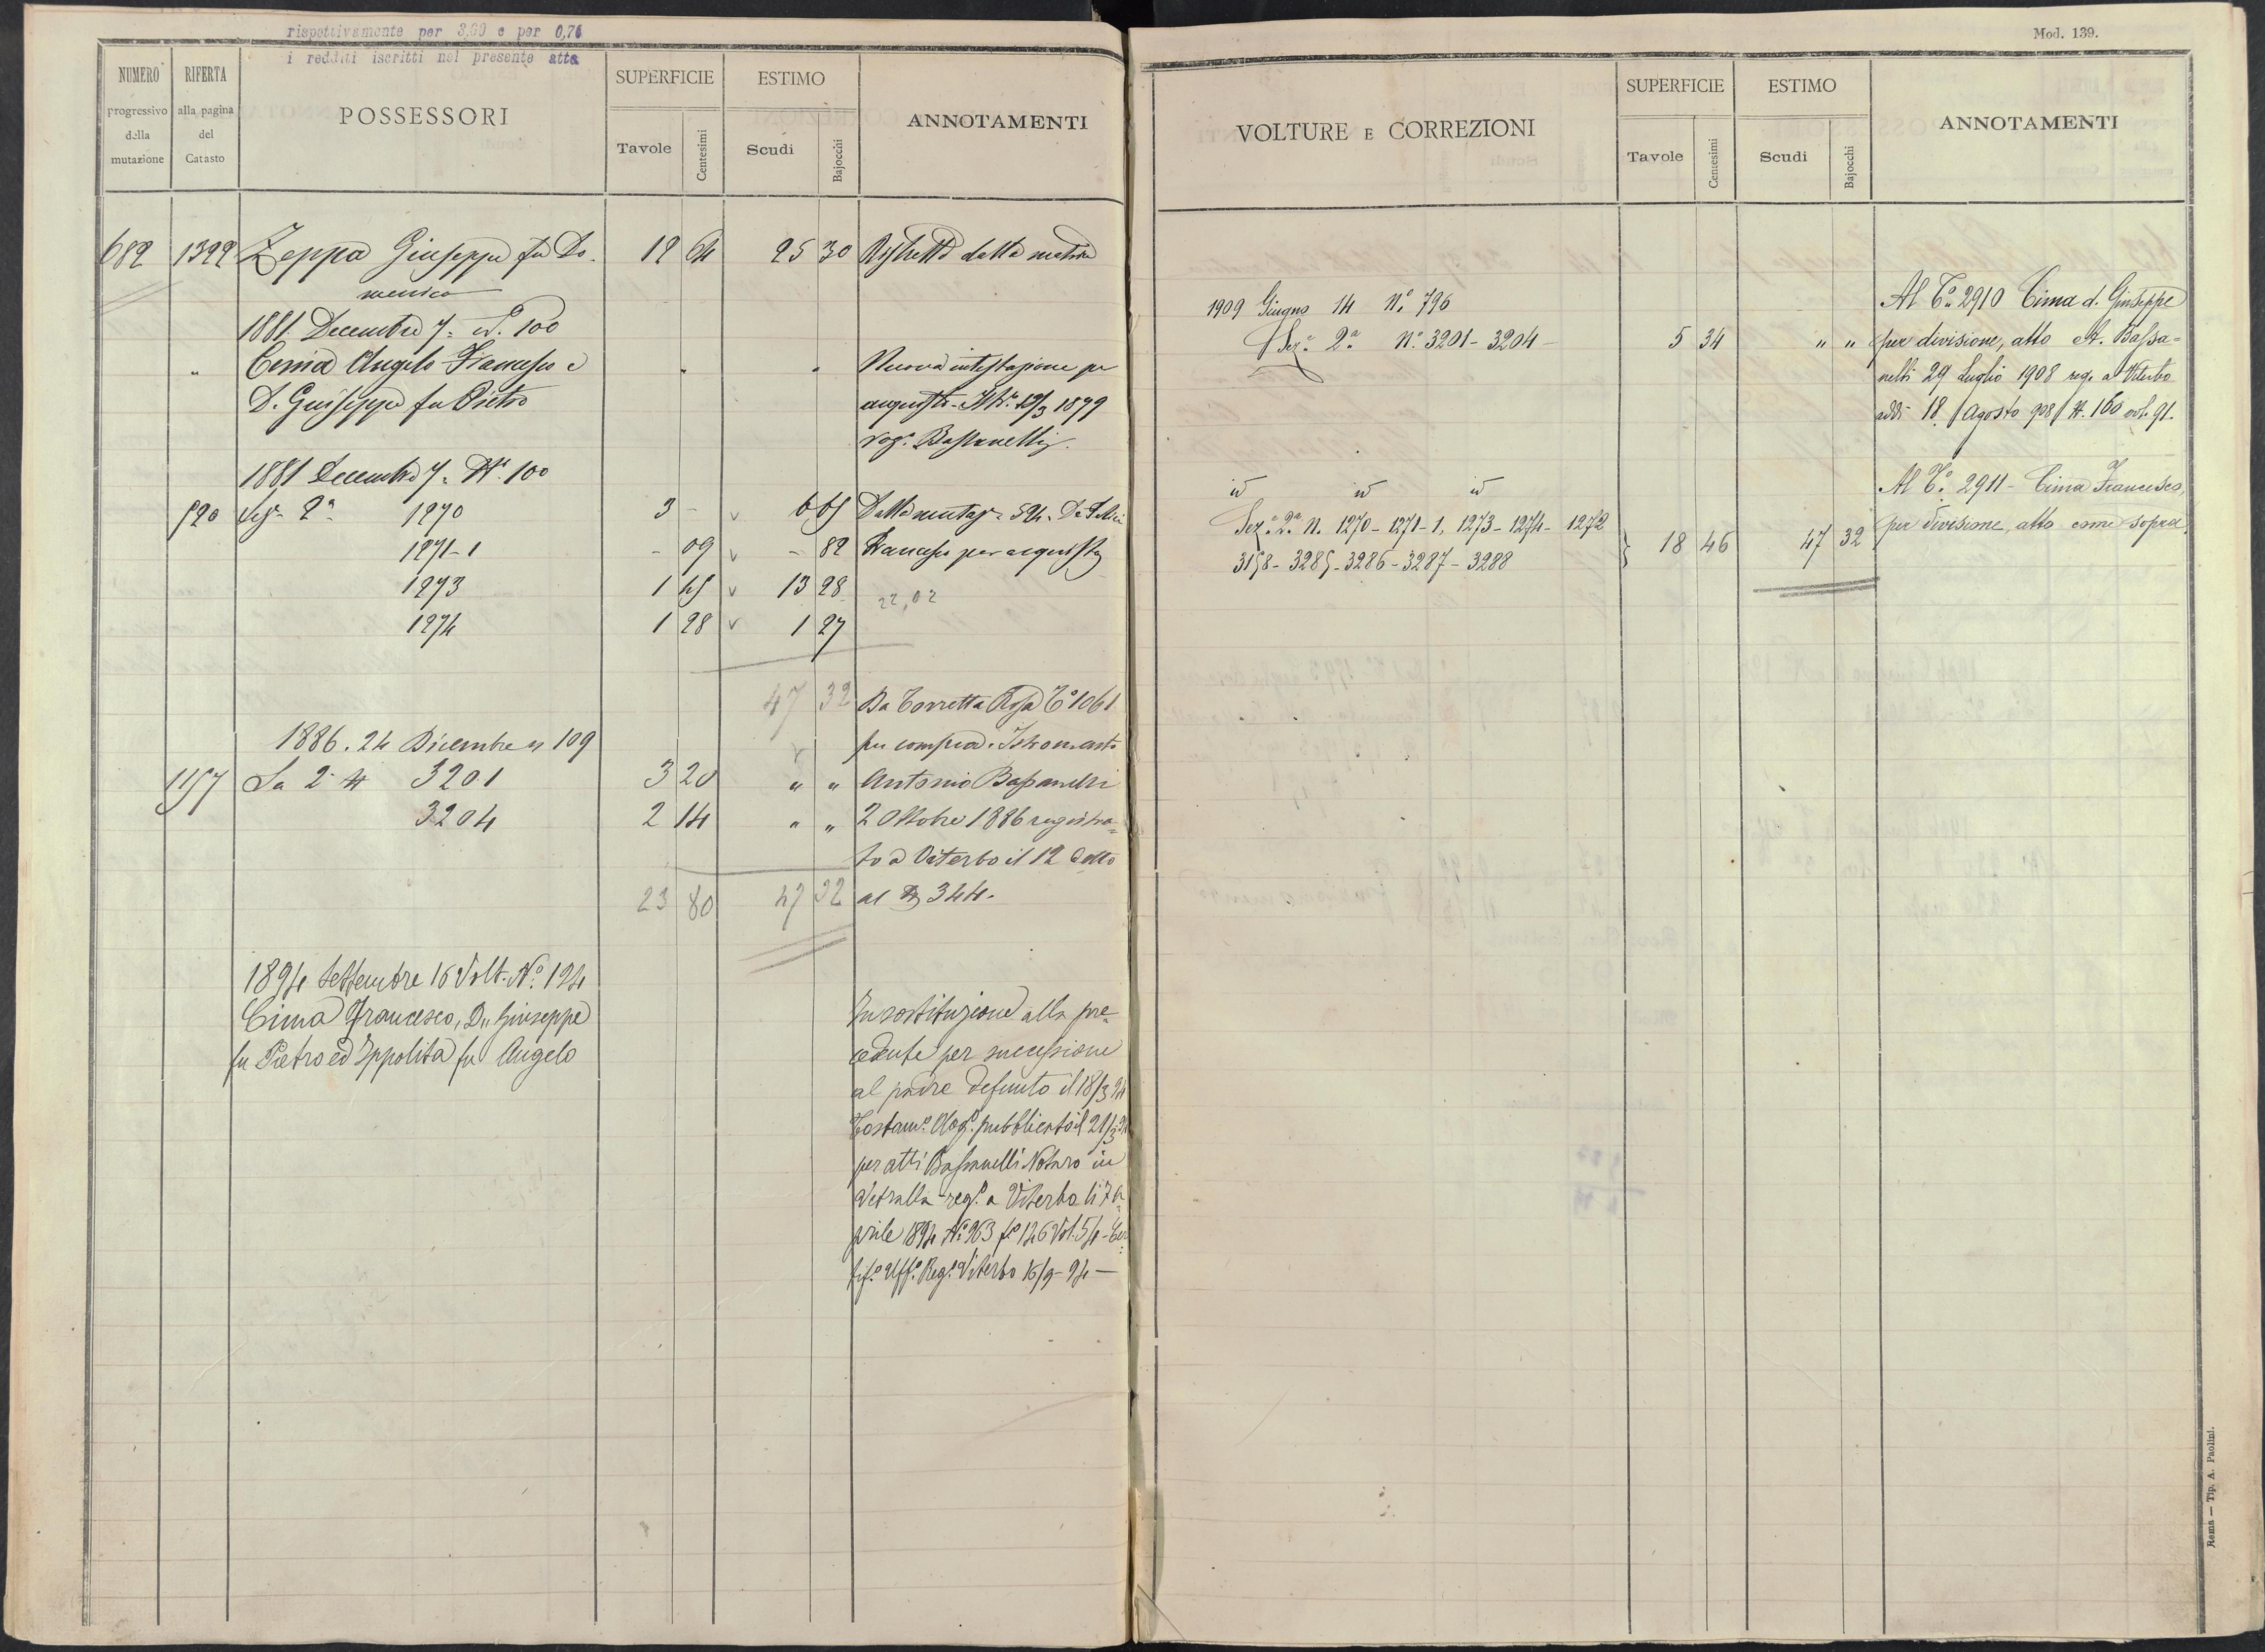 rispettivamente per 3,60 e per 0,76
i redditi iscritti nel presente atto
NUMERO progressivo della mutazione
RIFERTA alla pagina del Catasto
POSSESSORI
SUPERFICIE
Tavole Centesimi
ESTIMO
Scudi Bajocchi
ANNOTAMENTI
682 1322 Zeppa Giuseppe fu Do- 12 64 25 30 Ristretto dalla matrice
menico
1881. Decembre 7= N. 100
" Cima Angelo Francesco e " " Nuova intestazione per
D. Giuseppe fu Pietro acquisto - 1879
rog. Bassanelli
1881 Decembre 7= N. 100
520 Sez. 2a 1270 3 - v 6 65 Dalla mutaz.
1271-1 - 09 v - 82 Francesco per acquisto
1273 1 45 v 13 28 22,02
1274 1 28 v 1 27
47 32 Da Torretta Rosa To 1061
1886. 24 Dicembre n 109 per compra. Istromento
1157 Sa 2a # 3201 3 20 " " Antonio Bassanelli
3204 2 14 " " 2 Ottobre 1886 registra=
to a Viterbo il 12 detto
23 80 47 32 al 344.
1894 Settembre 16 Volt. No. 124
Cima Francesco, D. Giuseppe
fu Pietro ed Ippolita fu Angelo
In sostituzione alla pre-
cedente per successione
al padre defunto il 18/3 94
pubblicato il 21/3 94
per atti Bassanelli Notaro in
Vetralla reg. a Viterbo li 7 a-
prile 1894 No 963 fo 126 Vol. 54 - Cer
tif.o Uff.o Reg.o Viterbo 16/9 - 94 —
Mod. 139.
VOLTURE E CORREZIONI
SUPERFICIE
Tavole Centesimi
ESTIMO
Scudi Bajocchi
ANNOTAMENTI
Al To 2910 Cima d. Giuseppe
1909 Giugno 14 No 796
Sez. 2a No. 3201 - 3204 - 5 34 " " per divisione, atto A. Bassa=
nelli 29 Luglio 1908 reg. a Viterbo
addì 18 Agosto 908 N. 160 vol. 91.
id id id Al To. 2911 - Cima Francesco,
Sez. 2a N. 1270 - 1271-1, 1273 - 1274 - 1272 per divisione, atto come sopra.
3158 - 3285 - 3286 - 3287 - 3288 } 18 46 47 32
Roma — Tip. A. Paolini.